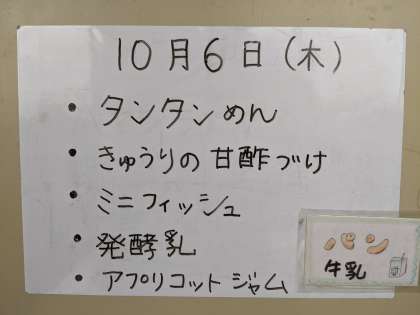 10月6日(木)
• タンタンめん
• きゅうりの甘酢づけ
• ミニフィッシュ
• 発酵乳
• アプリコットジャム
パン
牛乳